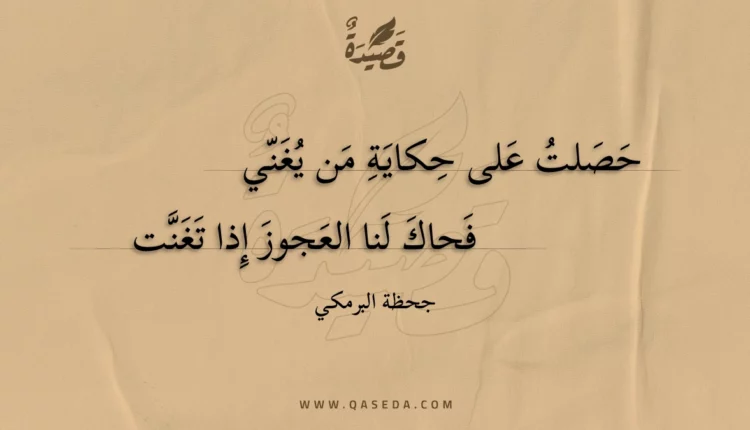 قَصِيدَةٌ
حَصَلتُ عَلى حِكايَةِ مَن يُغَنّي
فَحاكَ لَنا العَجوزَ إِذا تَغَنَّت
جحظة البرمكي
WWW.QASEDA.COM